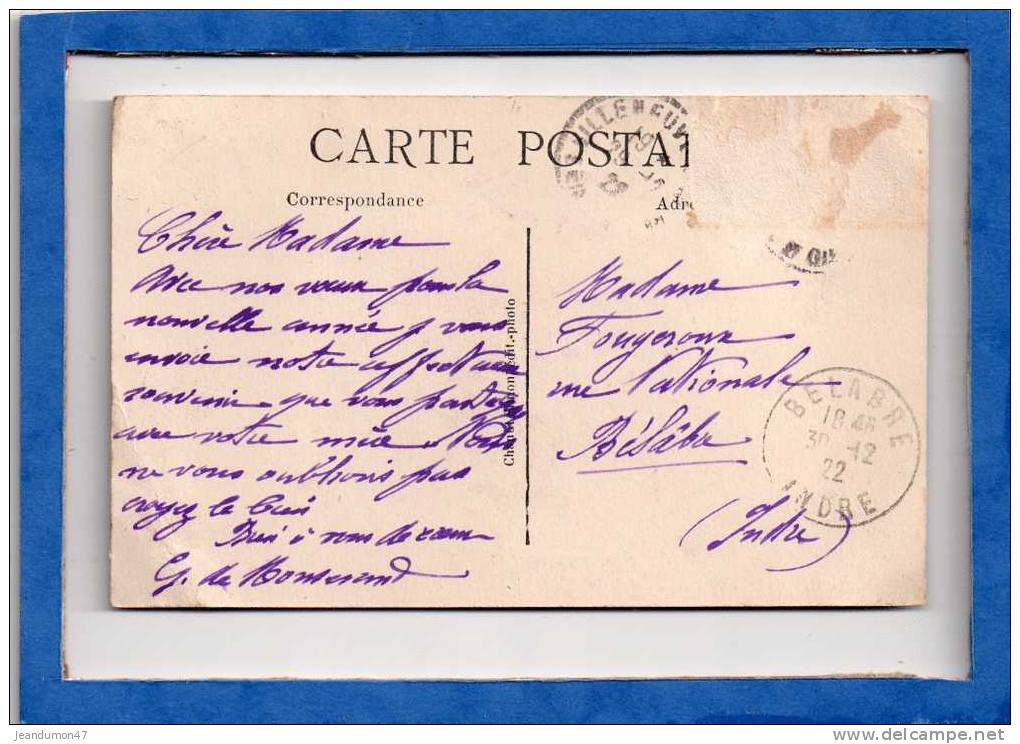 CARTE POSTA
Correspondance
Adre
VILLENEUV
Chère Madame
Avec nos vœux pour la
nouvelle année j vous
envoie notre affectueux
souvenir que vous partagez
avec votre mère Nous
ne vous oublions pas
croyez le bien
Bien à vous de cœur
G. de
édit.-photo
Madame
Fougeroux
rue Nationale
Bélâbre
(Indre)
BELABRE
18 45
30 -12
22
INDRE
jeandumon47
www.delcampe.net